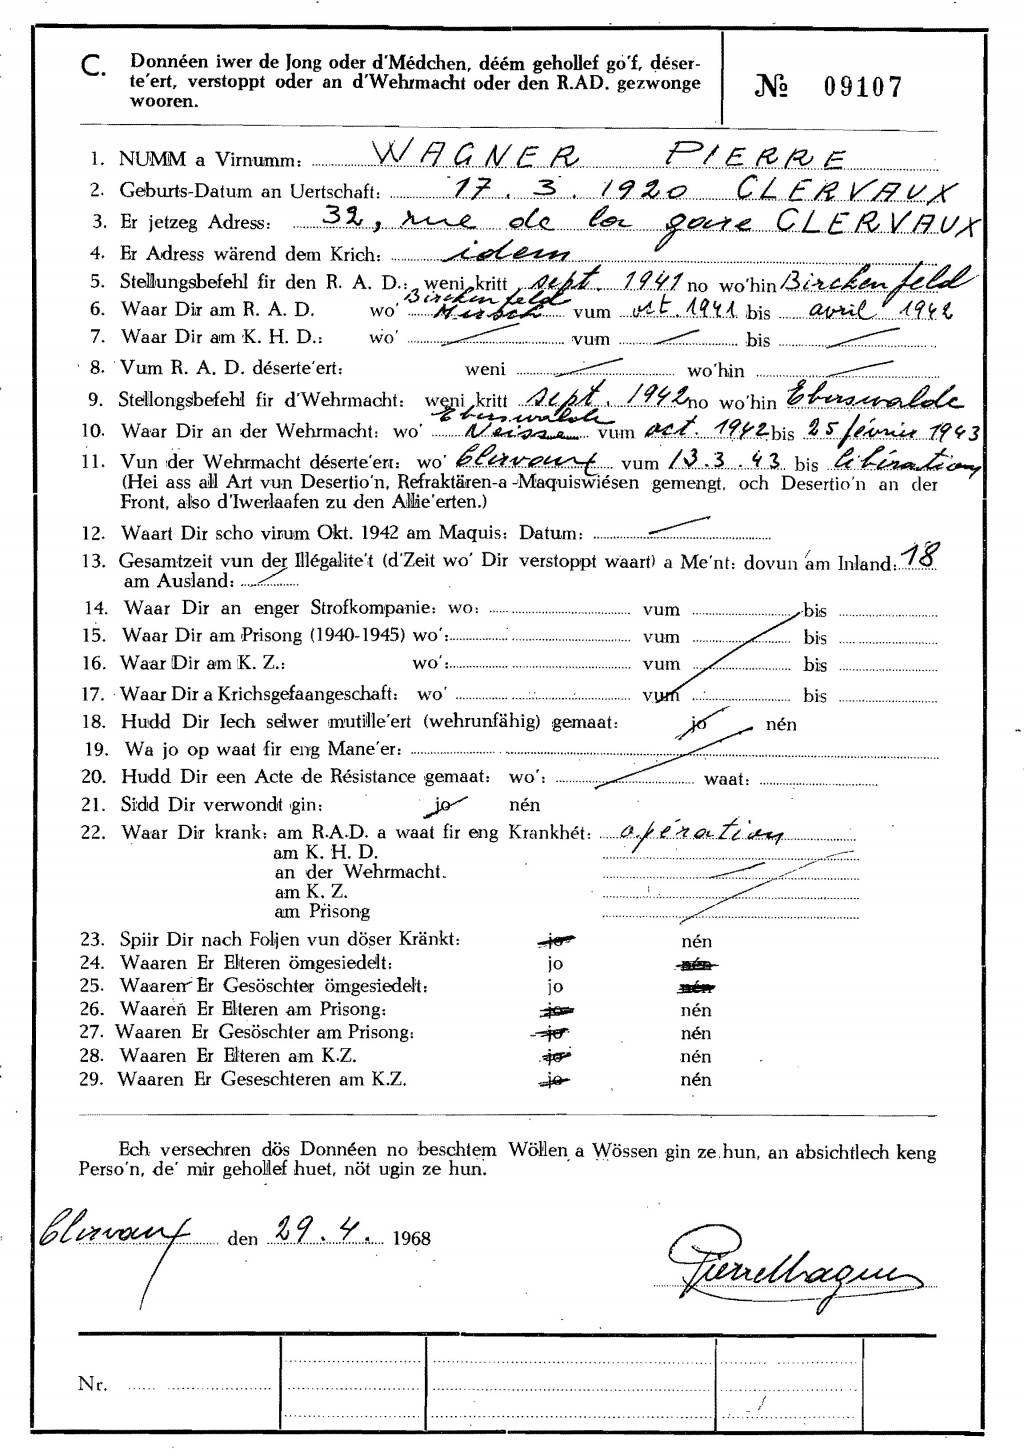 C. Donnéen iwer de Jong oder d'Médchen, déém gehollef go'f, déser-
te'ert, verstoppt oder an d'Wehrmacht oder den R.AD. gezwonge
wooren.
№ 09107
1. NUMM a Virnumm: WAGNER PIERRE
2. Geburts-Datum an Uertschaft: 17.3.1920 CLERVAUX
3. Er jetzeg Adress: 32, rue de la gare CLERVAUX
4. Er Adress wärend dem Krich: idem
5. Stellungsbefehl fir den R. A. D.: weni kritt sept. 1941 no wo'hin Birckenfeld
Birckenfeld
6. Waar Dir am R. A. D. wo' Hirsch vum oct. 1941 bis avril 1942
7. Waar Dir am K. H. D.: wo' vum bis
8. Vum R. A. D. déserte'ert: weni wo'hin
9. Stellongsbefehl fir d'Wehrmacht: weni kritt sept. 1942 no wo'hin Eberswalde
Eberswalde
10. Waar Dir an der Wehrmacht: wo' Neisse vum oct. 1942 bis 25 février 1943
11. Vun der Wehrmacht déserte'ert: wo' Clervaux vum 13.3.43 bis libération
(Hei ass all Art vun Desertio'n, Refraktären-a-Maquiswiésen gemengt, och Desertio'n an der
Front, also d'Iwerlaafen zu den Allie'erten.)
12. Waart Dir scho virum Okt. 1942 am Maquis: Datum:
13. Gesamtzeit vun der Illégalite't (d'Zeit wo' Dir verstoppt waart) a Me'nt: dovun am Inland: 18
am Ausland:
14. Waar Dir an enger Strofkompanie: wo: vum bis
15. Waar Dir am Prisong (1940-1945) wo': vum bis
16. Waar Dir am K. Z.: wo': vum bis
17. Waar Dir a Krichsgefaangeschaft: wo' vum bis
18. Hudd Dir Iech selwer mutille'ert (wehrunfähig) gemaat: jo nén
19. Wa jo op waat fir eng Mane'er:
20. Hudd Dir een Acte de Résistance gemaat: wo': waat:
21. Sidd Dir verwondt gin: jo nén
22. Waar Dir krank: am R.A.D. a waat fir eng Krankhét: opération
am K. H. D.
an der Wehrmacht.
am K. Z.
am Prisong
23. Spiir Dir nach Foljen vun döser Kränkt: jo nén
24. Waaren Er Elteren ömgesiedelt: jo nén
25. Waaren Er Gesöschter ömgesiedelt: jo nén
26. Waaren Er Elteren am Prisong: jo nén
27. Waaren Er Gesöschter am Prisong: jo nén
28. Waaren Er Elteren am K.Z. jo nén
29. Waaren Er Geseschteren am K.Z. jo nén
Ech versechren dös Donnéen no beschtem Wöllen a Wössen gin ze hun, an absichtlech keng
Perso'n, de' mir gehollef huet, nöt ugin ze hun.
Clervaux den 29.4. 1968
Pierre Wagner
Nr.